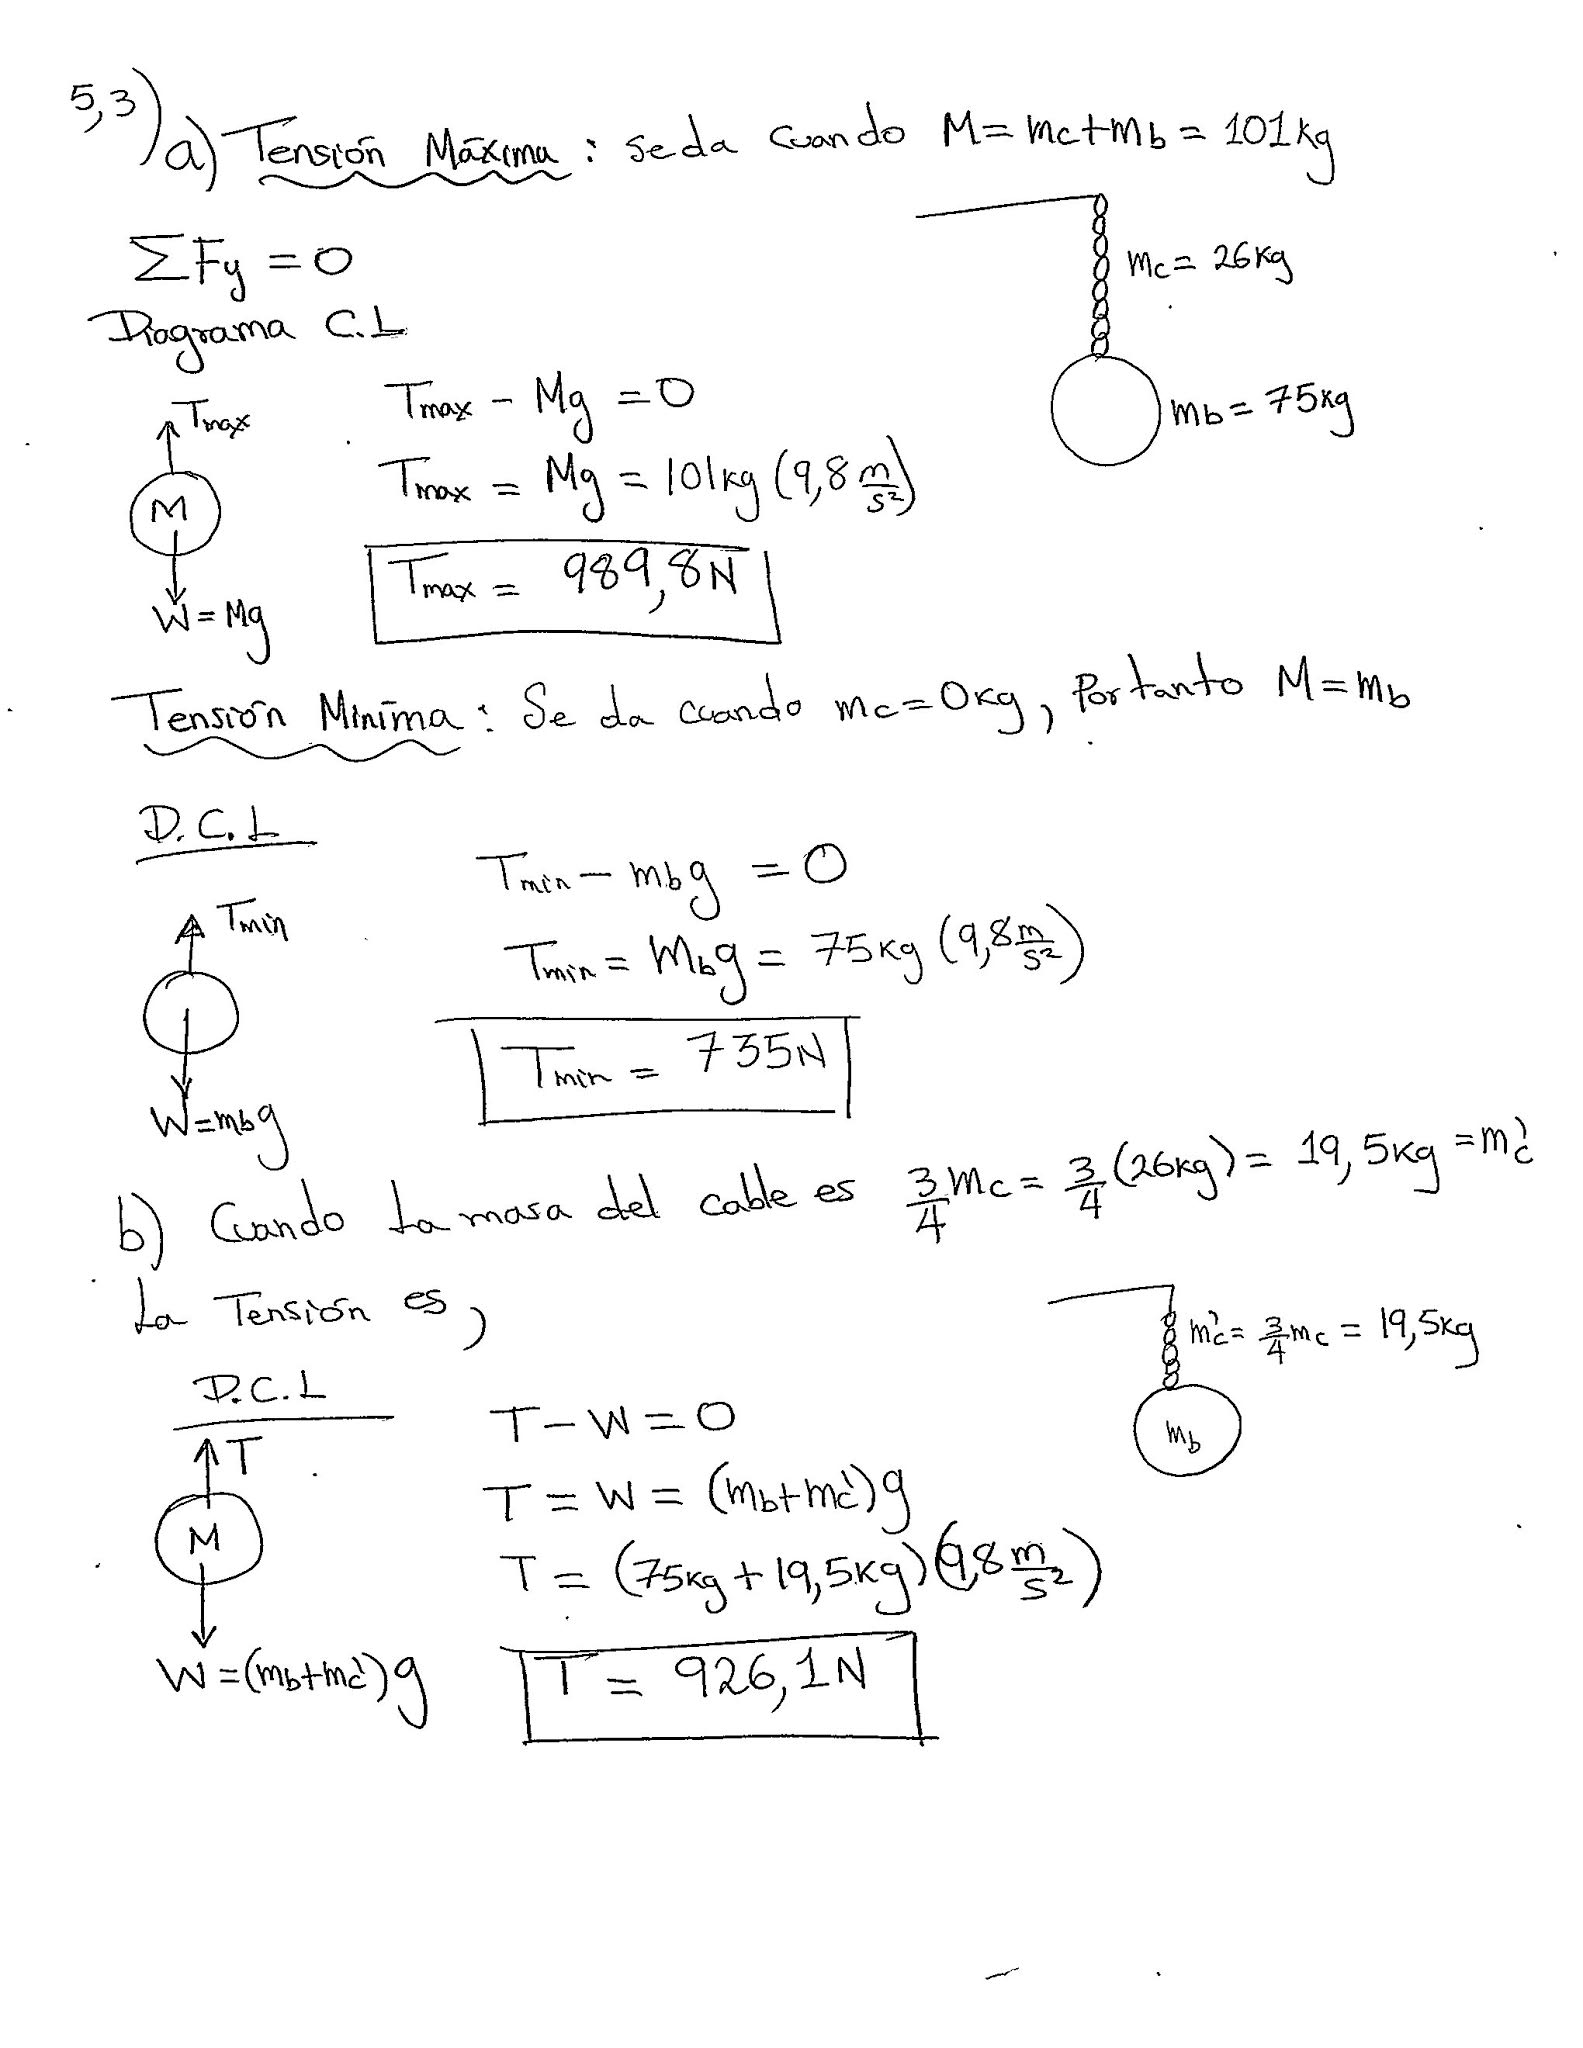 5,3) a) Tensión Máxima: se da cuando M = mc+mb = 101kg
ΣFy = 0
mc = 26kg
Diagrama C.L
Tmax
Tmax - Mg = 0
mb = 75kg
M
Tmax = Mg = 101kg (9,8 m/s²)
W = Mg
Tmax = 989,8N
Tensión Mínima: Se da cuando mc=0kg, Por tanto M=mb
D.C.L
Tmin - mbg = 0
Tmin
Tmin = mbg = 75kg (9,8 m/s²)
Tmin = 735N
W=mbg
b) Cuando La masa del cable es 3/4 mc = 3/4 (26kg) = 19,5kg = mc'
La Tensión es,
mc' = 3/4 mc = 19,5kg
D.C.L
T - W = 0
mb
T
T = W = (mb+mc')g
M
T = (75kg + 19,5kg)(9,8 m/s²)
W = (mb+mc')g
T = 926,1N